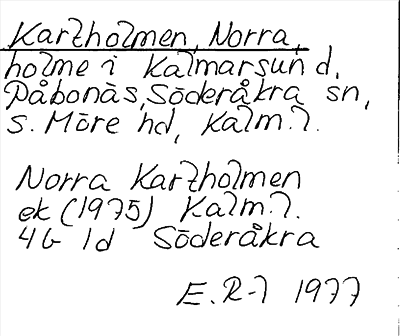 Karlholmen, Norra,
holme i Kalmarsund,
Påbonäs, Söderåkra sn,
S. Möre hd, Kalm. l.
Norra Karlholmen
ek (1975) Kalm. l.
4G 1d Söderåkra
E. R-l 1977